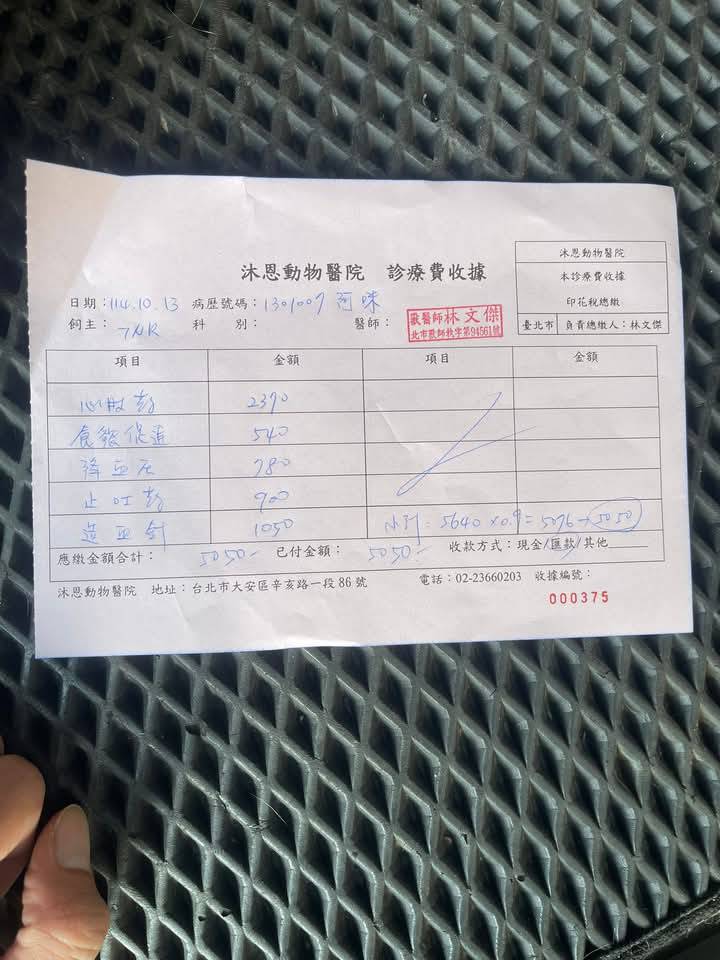 沐恩動物醫院 診療費收據
沐恩動物醫院
本診療費收據
印花稅總繳
臺北市 負責總繳人：林文傑
日期：114.10.13 病歷號碼：1301007
飼主： 科 別： 醫師：
獸醫師林文傑
北市獸師執字第94561號
項目 金額 項目 金額
2370
540
降血压 780
止吐 900
造血針 1050 小計：5640×0.9=5076→5050
應繳金額合計：5050- 已付金額：5050- 收款方式：現金/匯款/其他
沐恩動物醫院 地址：台北市大安區辛亥路一段86號 電話：02-23660203 收據編號：
000375